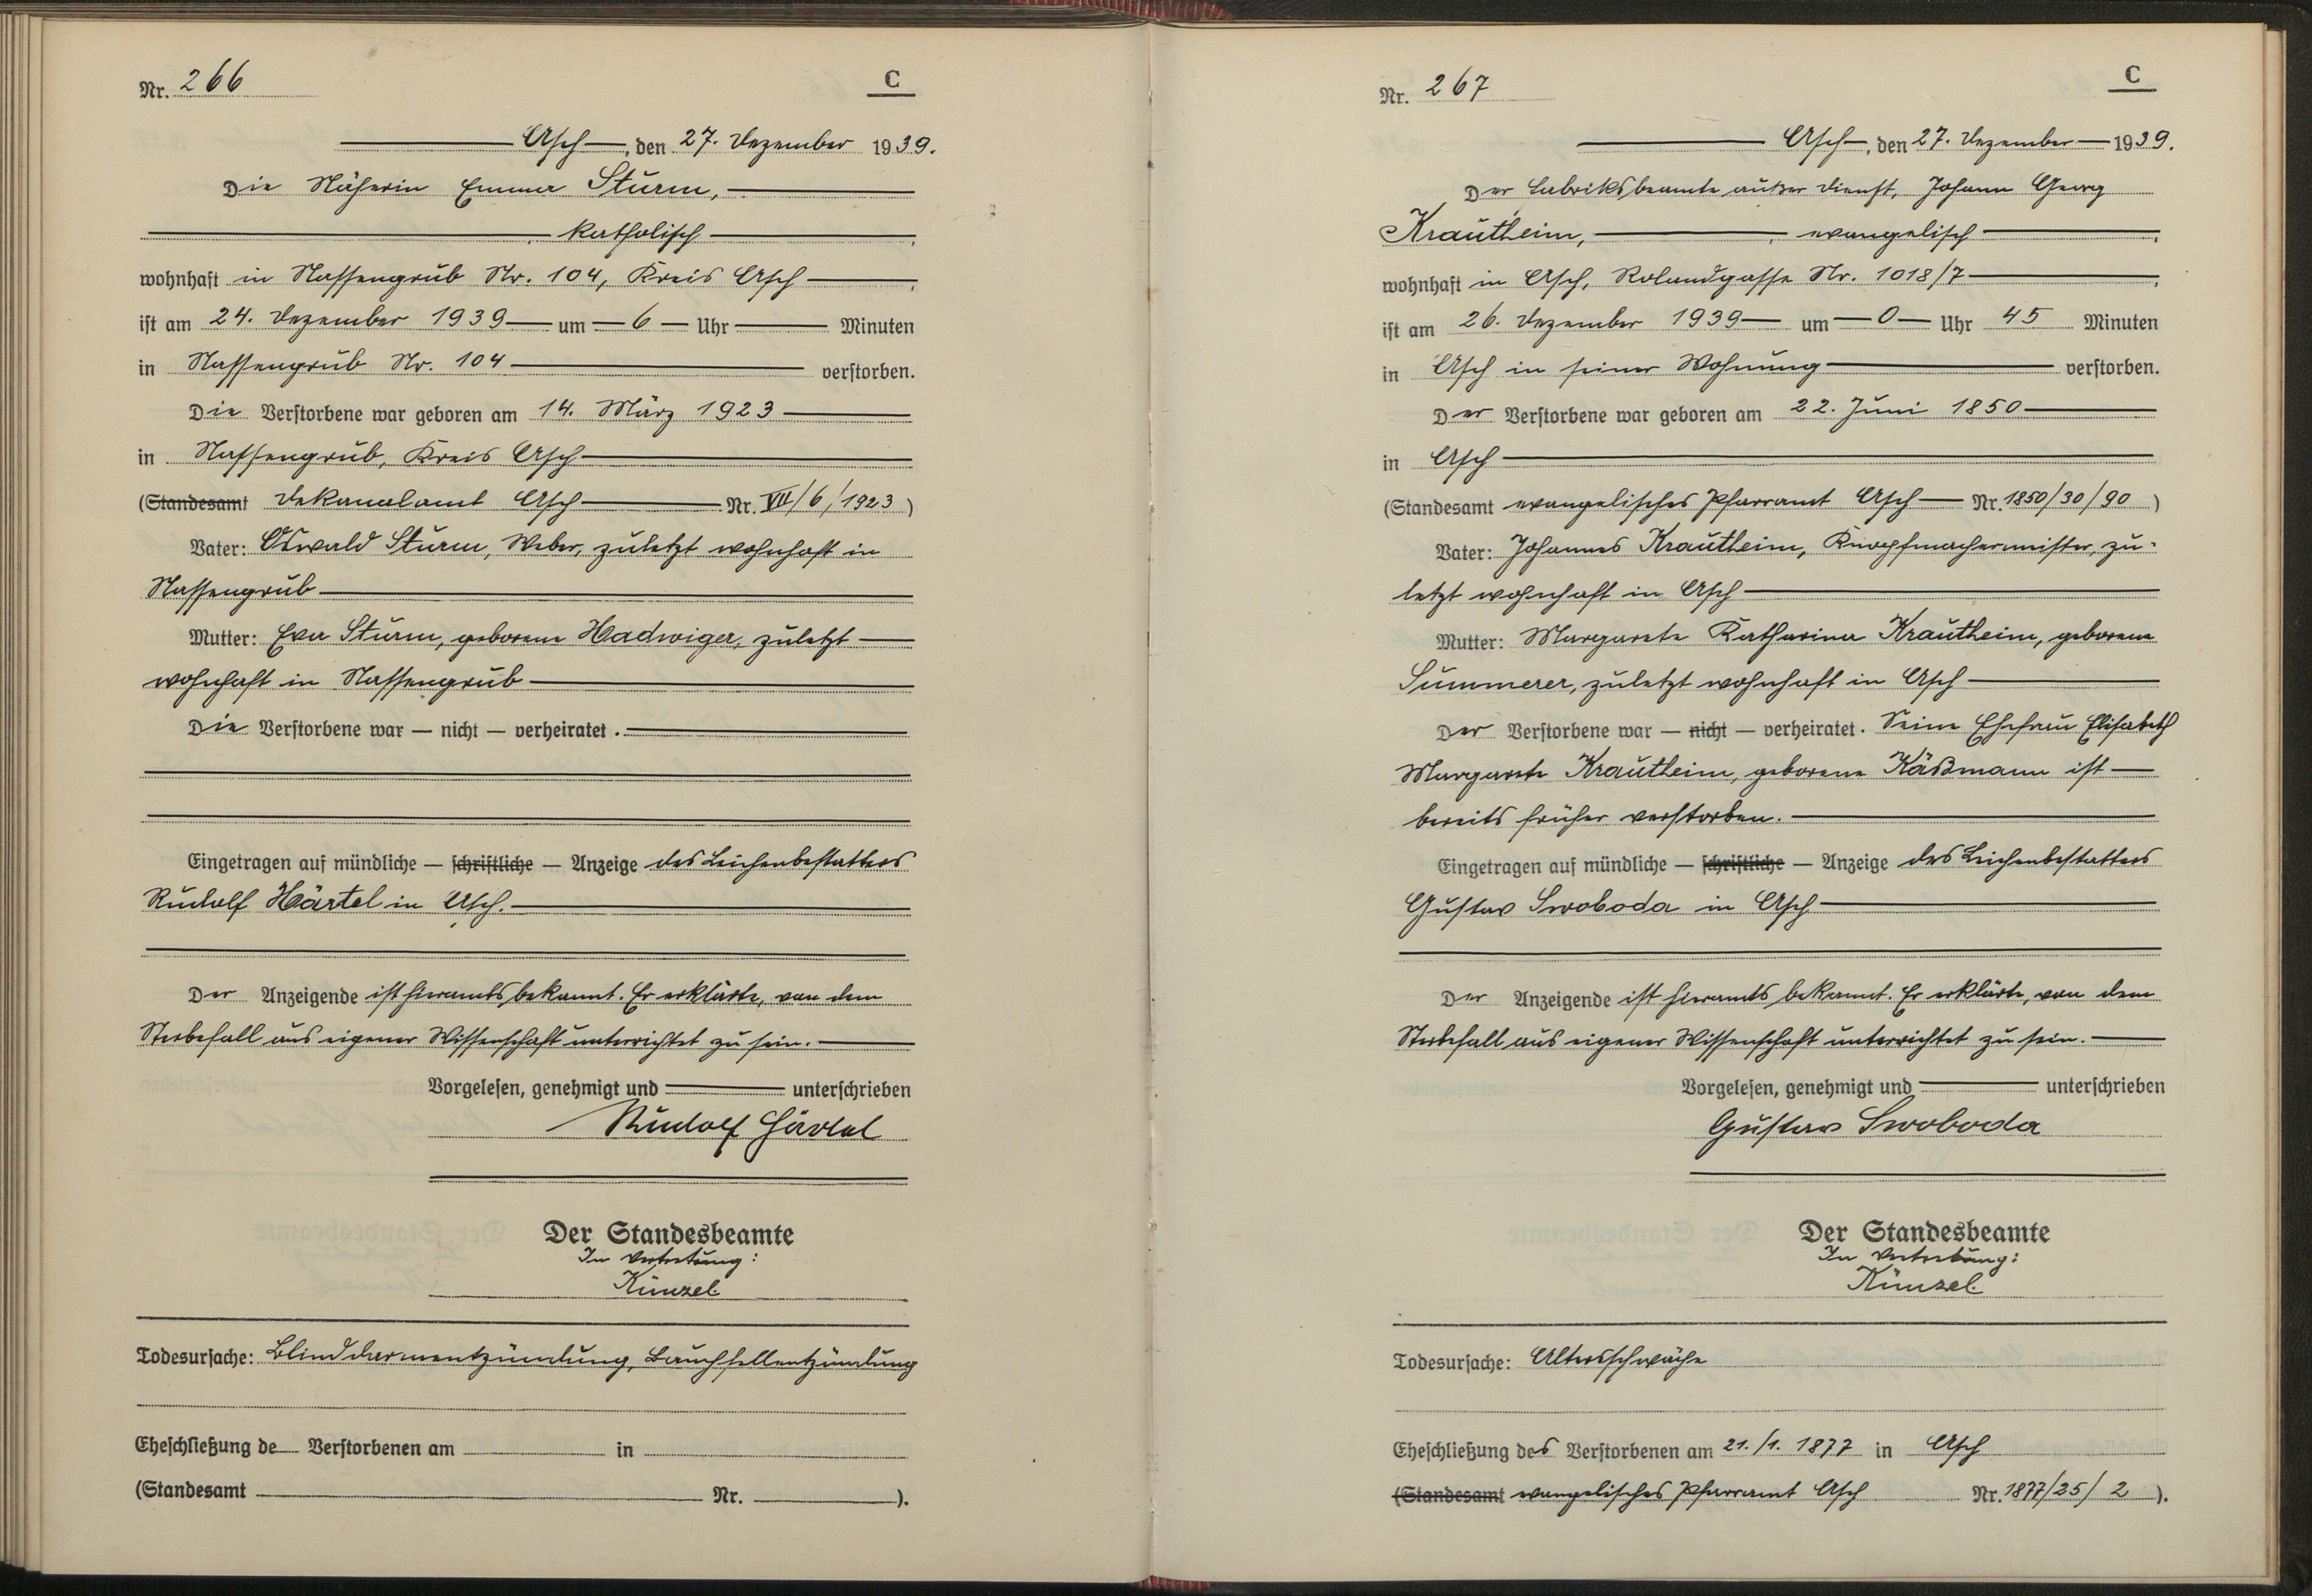 Nr. 266
C
Asch, den 27. Dezember 1939.
Die Näherin Emma Sturm,
katholisch,
wohnhaft in Nassengrub Nr. 104, Kreis Asch,
ist am 24. Dezember 1939 um 6 Uhr Minuten
in Nassengrub Nr. 104 verstorben.
Die Verstorbene war geboren am 14. März 1923
in Nassengrub, Kreis Asch
(Standesamt Dekanalamt Asch Nr. VII/6/1923)
Vater: Oswald Sturm, Weber, zuletzt wohnhaft in
Nassengrub
Mutter: Eva Sturm, geborene Hadwiger, zuletzt
wohnhaft in Nassengrub
Die Verstorbene war — nicht — verheiratet.
Eingetragen auf mündliche — schriftliche — Anzeige des Leichenbestatters
Rudolf Härtel in Asch.
Der Anzeigende ist hieramts bekannt. Er erklärte, von dem
Sterbefall aus eigener Wissenschaft unterrichtet zu sein.
Vorgelesen, genehmigt und unterschrieben
Rudolf Härtel
Der Standesbeamte
In Vertretung:
Künzel
Todesursache: Blinddarmentzündung, Bauchfellentzündung
Eheschließung de Verstorbenen am in
(Standesamt Nr. ).
Nr. 267
C
Asch, den 27. Dezember 1939.
Der Fabriksbeamte außer Dienst, Johann Georg
Krautheim, evangelisch,
wohnhaft in Asch, Rolandgasse Nr. 1018/7,
ist am 26. Dezember 1939 um 0 Uhr 45 Minuten
in Asch in seiner Wohnung verstorben.
Der Verstorbene war geboren am 22. Juni 1850
in Asch
(Standesamt evangelisches Pfarramt Asch Nr. 1850/30/90)
Vater: Johannes Krautheim, Knopfmachermeister, zu-
letzt wohnhaft in Asch
Mutter: Margarete Katharina Krautheim, geborene
Summerer, zuletzt wohnhaft in Asch
Der Verstorbene war — nicht — verheiratet. Seine Ehefrau Elisabeth
Margarete Krautheim, geborene Käßmann ist
bereits früher verstorben.
Eingetragen auf mündliche — schriftliche — Anzeige des Leichenbestatters
Gustav Swoboda in Asch
Der Anzeigende ist hieramts bekannt. Er erklärte, von dem
Sterbefall aus eigener Wissenschaft unterrichtet zu sein.
Vorgelesen, genehmigt und unterschrieben
Gustav Swoboda
Der Standesbeamte
In Vertretung:
Künzel
Todesursache: Altersschwäche
Eheschließung des Verstorbenen am 21./1. 1877 in Asch
(Standesamt evangelisches Pfarramt Asch Nr. 1877/25/2).